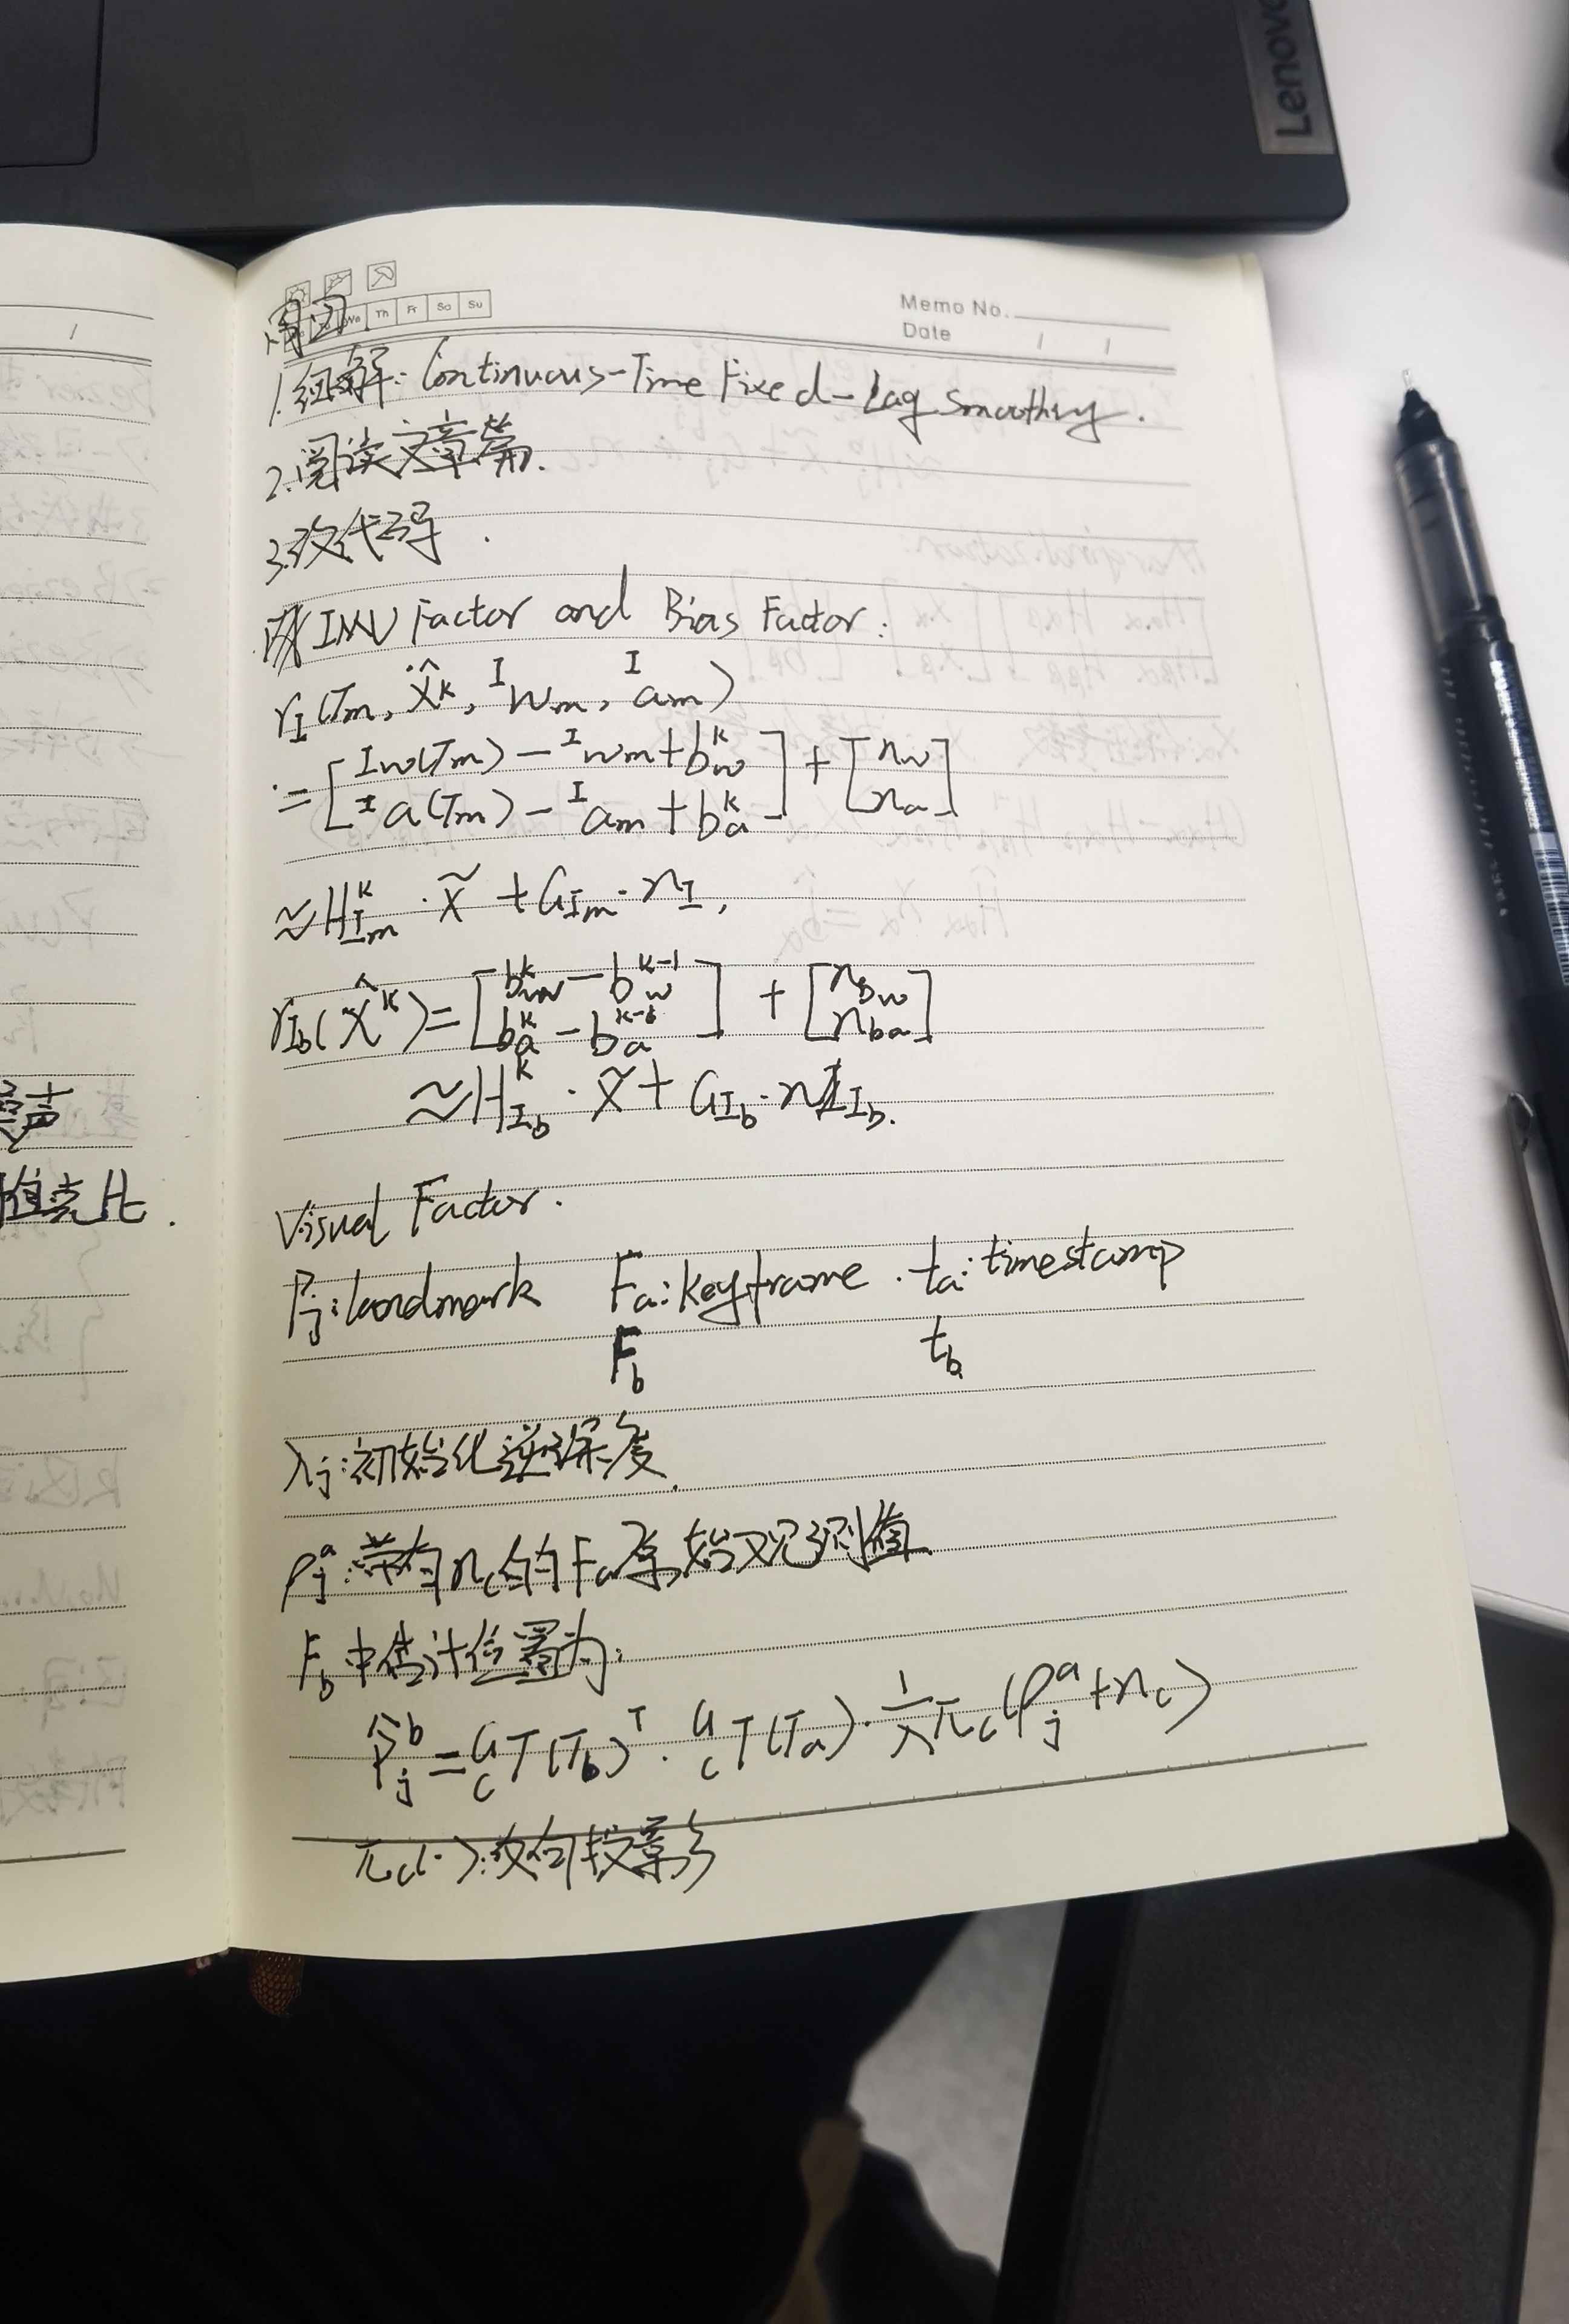 Lenovo
Memo No.
Date / /
We Th Fr Sa Su
周四
1.细解: Continuous-Time Fixed-Lag Smoothing.
2.阅读文章篇.
3.改代码.
IMU Factor and Bias Factor:
r_I(τ_m, x̂^k, ^Iw_m, ^Ia_m)
= [ ^Iw(τ_m) − ^Iw_m + b_w^k ; ^Ia(τ_m) − ^Ia_m + b_a^k ] + [ n_w ; n_a ]
≈ H_{I_m}^k · x̃ + G_{I_m} · n_I,
r_{I_b}(x̂^k) = [ b_w^k − b_w^{k-1} ; b_a^k − b_a^{k-1} ] + [ n_{b_w} ; n_{b_a} ]
≈ H_{I_b}^k · x̃ + G_{I_b} · n_{I_b}.
Visual Factor.
P_j: landmark F_a: keyframe. t_a: timestamp
F_b t_b
λ_j: 初始化逆深度.
ρ_j^a: 带有n_c的F_a原始观测值.
F_b中估计位置为:
p̂_j^b = ^G_cT(τ_b)^T · ^G_cT(τ_a) · 1/λ π_c(ρ_j^a + n_c)
π_c(·): 反向投影
声
值克比.